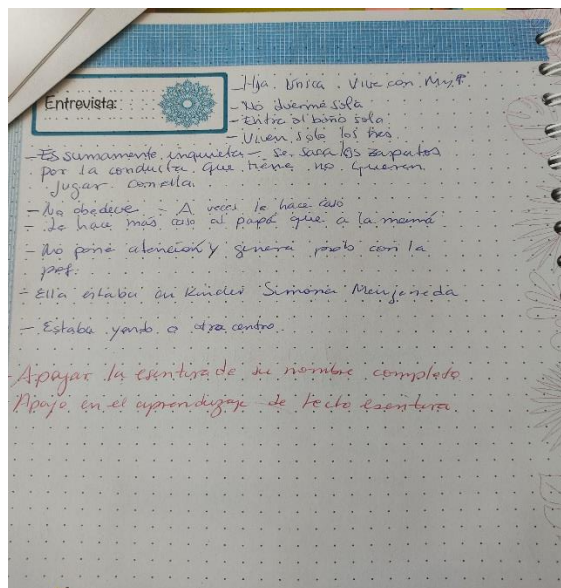 Entrevista:
- Hija Única Vive con M y P
- No duerme sola
- Entra al baño sola
- Viven solo los tres
- Es sumamente inquieta - se saca los zapatos
por la conducta que tiene no quieren
jugar con ella.
- No obedece - A veces le hace caso
- Le hace más caso al papá que a la mamá
- No pone atención y genera prob con la
prof.
- Ella estaba en Kinder Simona
- Estaba yendo a otro centro.
- Apoyar la escritura de su nombre completo
Apoyo en el aprendizaje de lecto escritura.